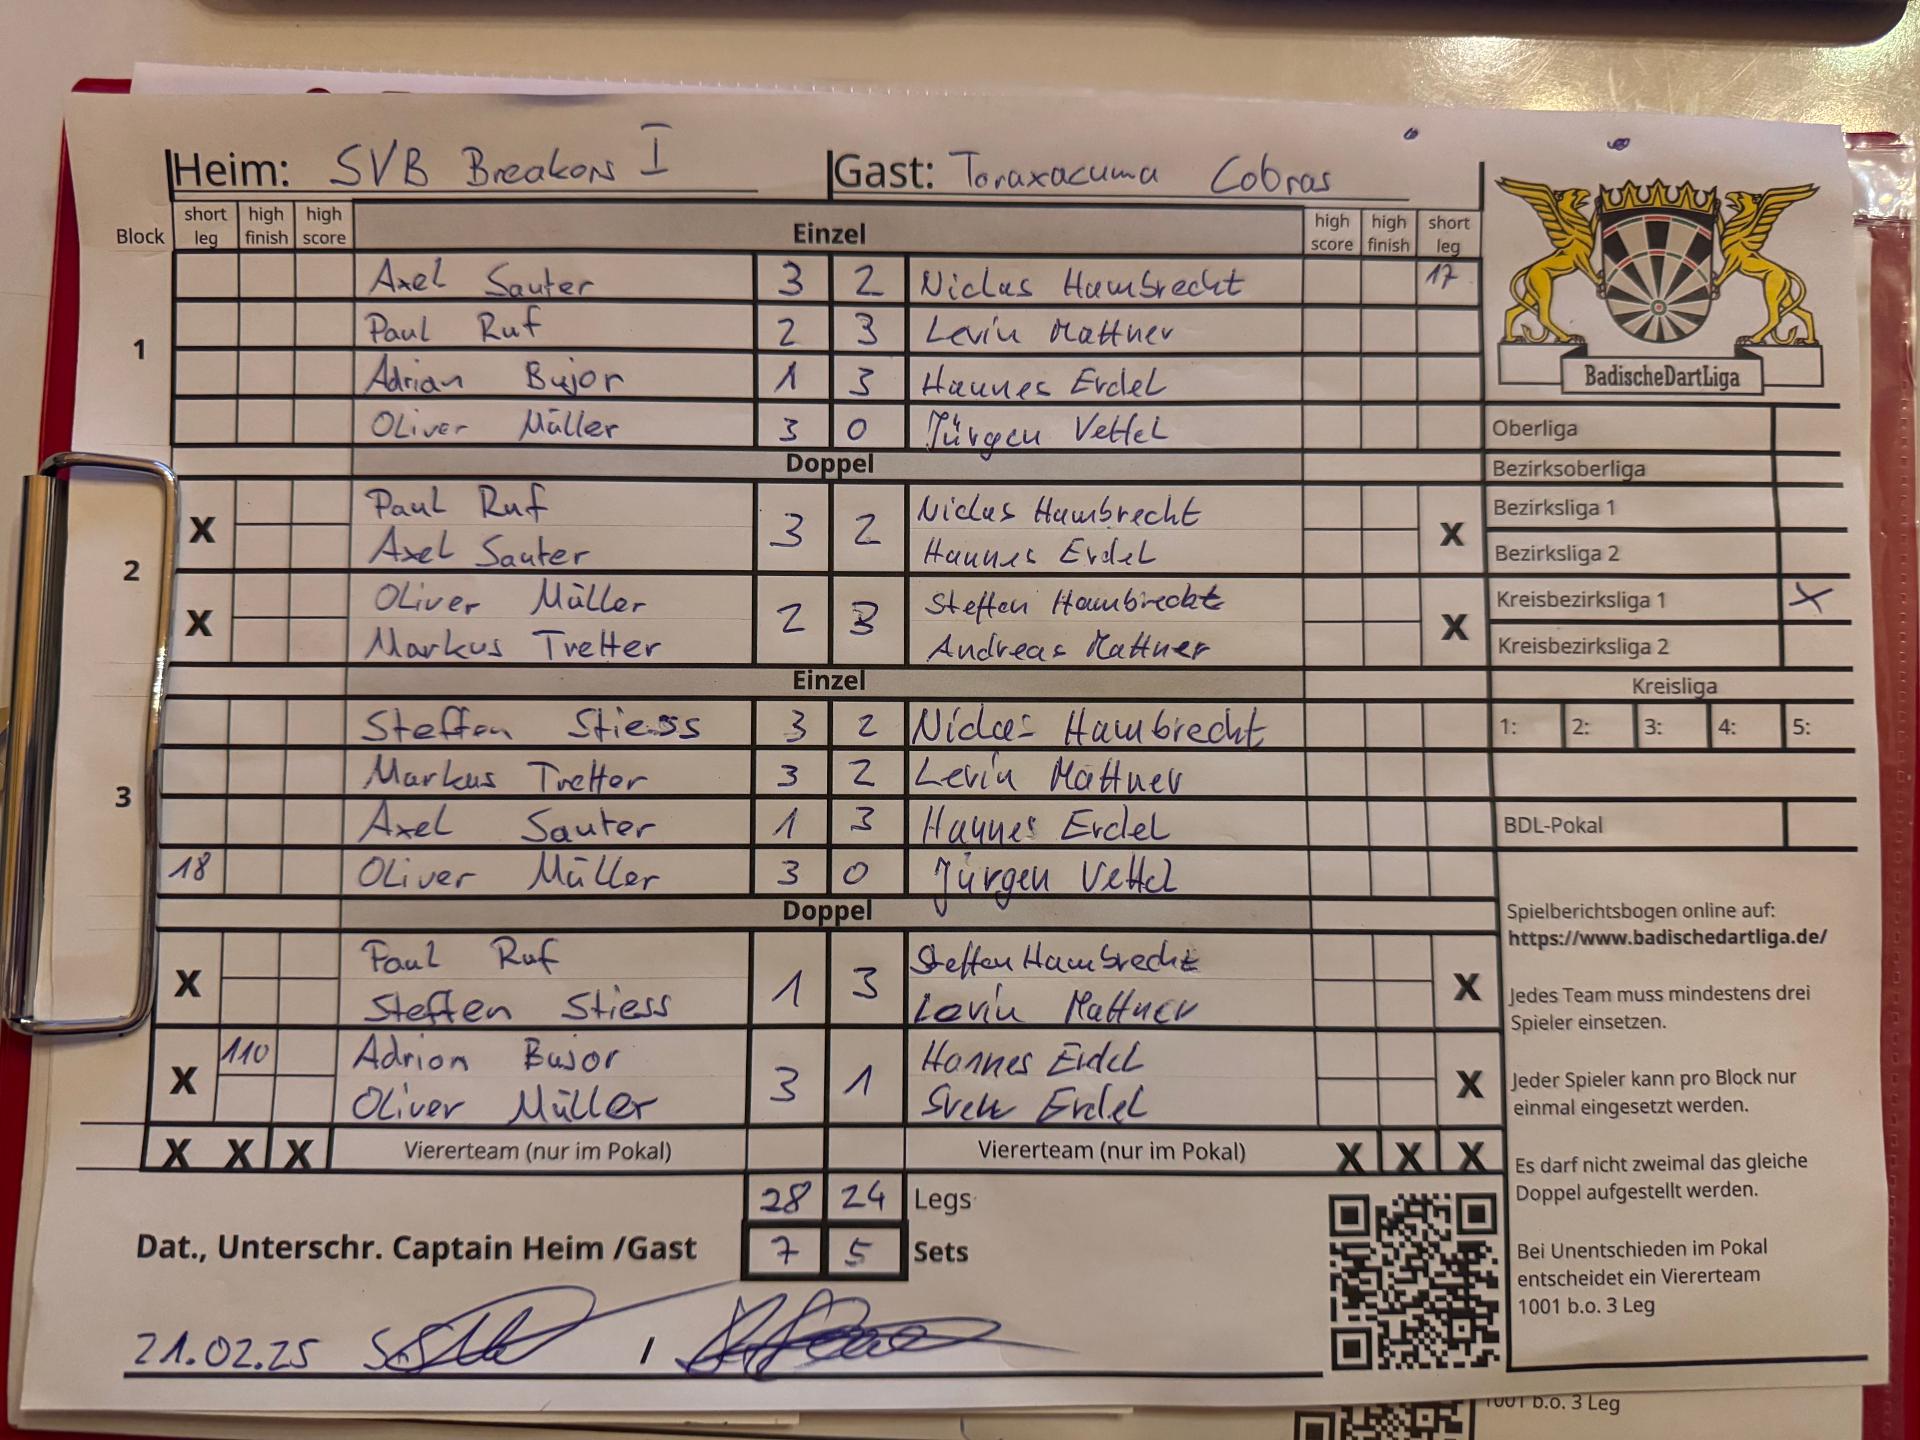 Heim: SVB Breakers I Gast: Taraxacuma Cobras
Block short leg high finish high score Einzel high score high finish short leg
1
Axel Sauter 3 2 Niclas Hambrecht 17
Paul Ruf 2 3 Levin Mattner
Adrian Bujor 1 3 Hannes Erdel
Oliver Müller 3 0 Jürgen Vettel
Doppel
2
X Paul Ruf 3 2 Niclas Hambrecht X
Axel Sauter Hannes Erdel
X Oliver Müller 2 3 Steffen Hambrecht X
Markus Tretter Andreas Mattner
Einzel
3
Steffen Stiess 3 2 Niclas Hambrecht
Markus Tretter 3 2 Levin Mattner
Axel Sauter 1 3 Hannes Erdel
18 Oliver Müller 3 0 Jürgen Vettel
Doppel
X Paul Ruf 1 3 Steffen Hambrecht X
Steffen Stiess Levin Mattner
X 110 Adrian Bujor 3 1 Hannes Erdel X
Oliver Müller Sven Erdel
X X X Vierterteam (nur im Pokal) Viererteam (nur im Pokal) X X X
28 24 Legs
Dat., Unterschr. Captain Heim /Gast 7 5 Sets
21.02.25 /
BadischeDartLiga
Oberliga
Bezirksoberliga
Bezirksliga 1
Bezirksliga 2
Kreisbezirksliga 1 X
Kreisbezirksliga 2
Kreisliga
1: 2: 3: 4: 5:
BDL-Pokal
Spielberichtsbogen online auf:
https://www.badischedartliga.de/
Jedes Team muss mindestens drei
Spieler einsetzen.
Jeder Spieler kann pro Block nur
einmal eingesetzt werden.
Es darf nicht zweimal das gleiche
Doppel aufgestellt werden.
Bei Unentschieden im Pokal
entscheidet ein Viererteam
1001 b.o. 3 Leg
1001 b.o. 3 Leg